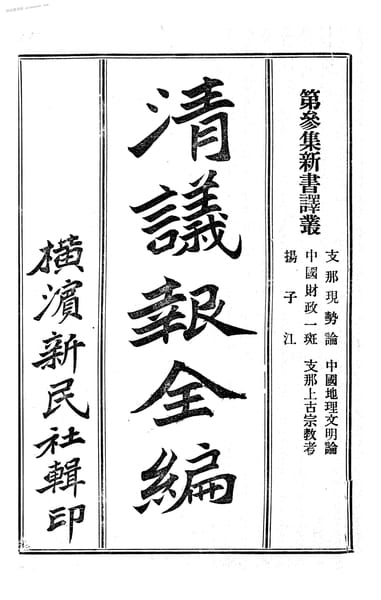 第參集新書譯叢
支那現勢論　中國地理文明論
中國財政一斑　支那上古宗教考
揚子江
清議報全編
橫濱新民社輯印